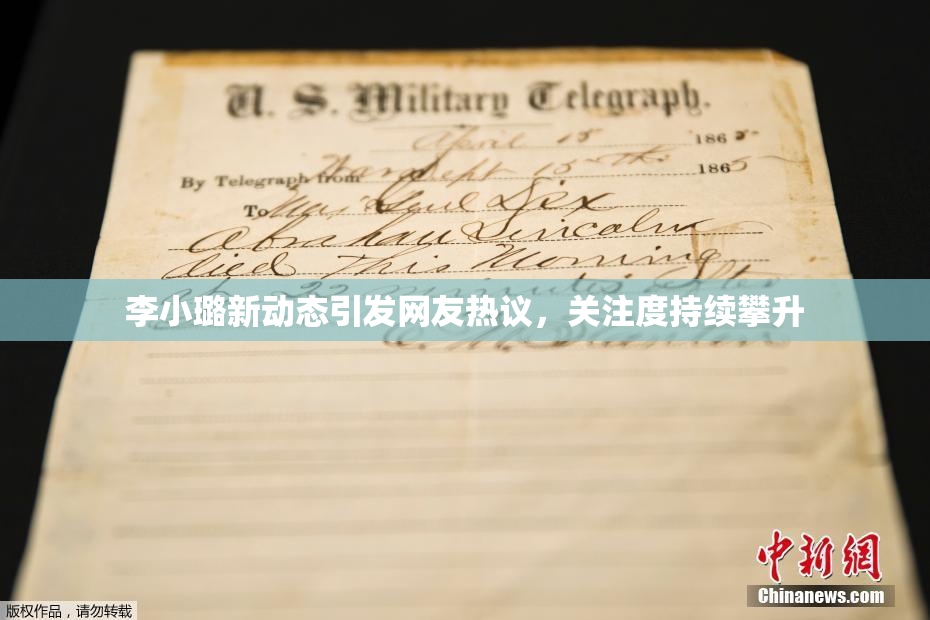 U. S. Military Telegraph.
April 15 1865
By Telegraph from War Dept 15th 1865
To Maj Genl Dix
Abraham Lincoln
died this Morning
at 22 minutes after
李小璐新动态引发网友热议，关注度持续攀升
E. M. Stanton
中新网
Chinanews.com
版权作品，请勿转载